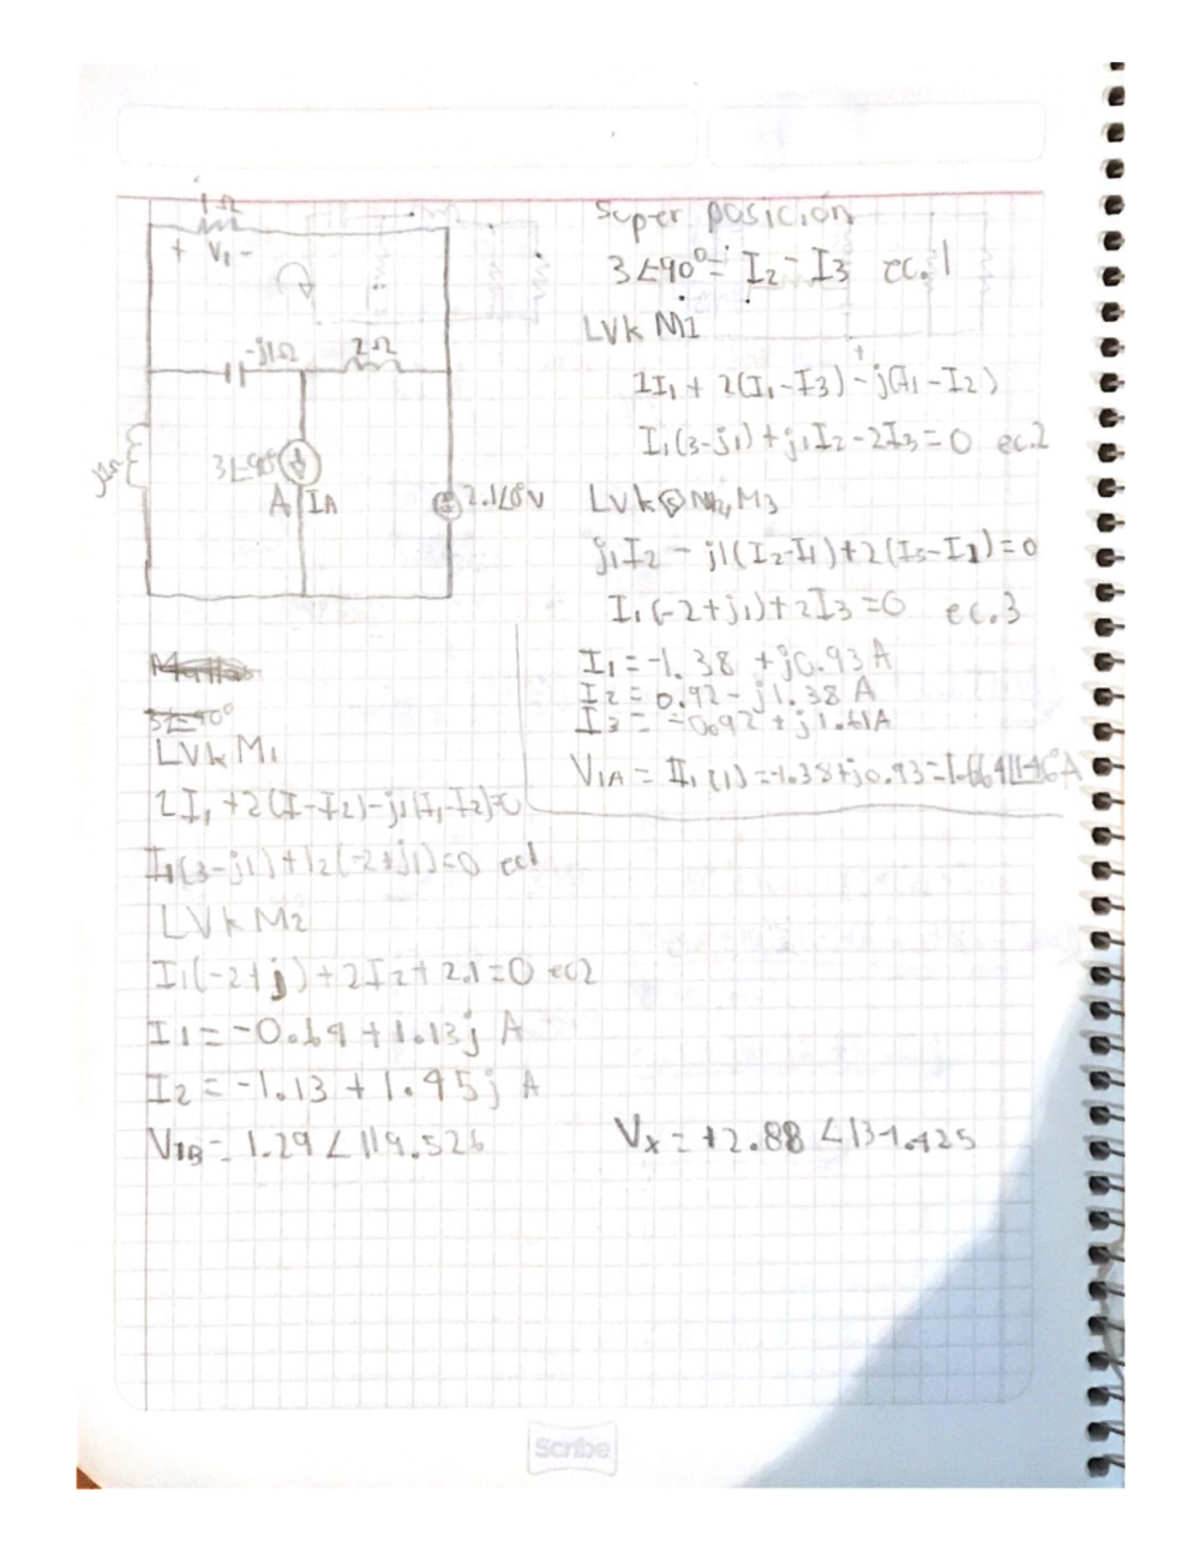 1Ω
+ V1 -
-j1Ω 2Ω
3∠90°
A IA
2.1∠0°V
Super posición
3∠90°= I2 - I3 ec.1
LVk M1
1I1 + 2(I1-I3) - j(I1-I2)
I1(3-j1) + j1I2 - 2I3 = 0 ec.2
LVk M2, M3
j1I2 - j1(I2-I1) + 2(I3-I1) = 0
I1(-2+j1) + 2I3 = 0 ec.3
I1 = -1.38 + j0.93 A
I2 = 0.92 - j1.38 A
I3 = -0.92 + j1.61A
V1A = I1(1) = -1.38+j0.93 =
LVk M1
1I1 + 2(I-I2) - j1(I1-I2)=0
I1(3-j1) + I2(-2+j1)=0 ec1
LVk M2
I1(-2+j) + 2I2 + 2.1 = 0 ec2
I1 = -0.64 + 1.13j A
I2 = -1.13 + 1.45j A
V1B = 1.29∠119.526
Vx = +2.88 ∠134.425
Scribe